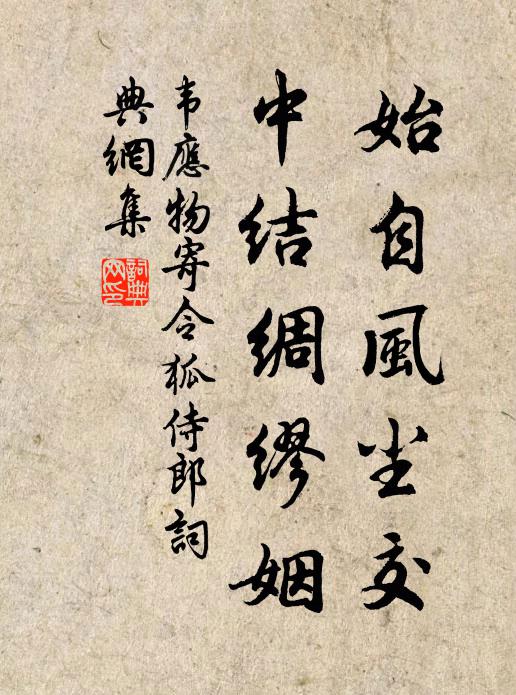 始自風尘交
中结綢缪姻
韦應物寄令狐侍郎詞
典網集
詞典网印